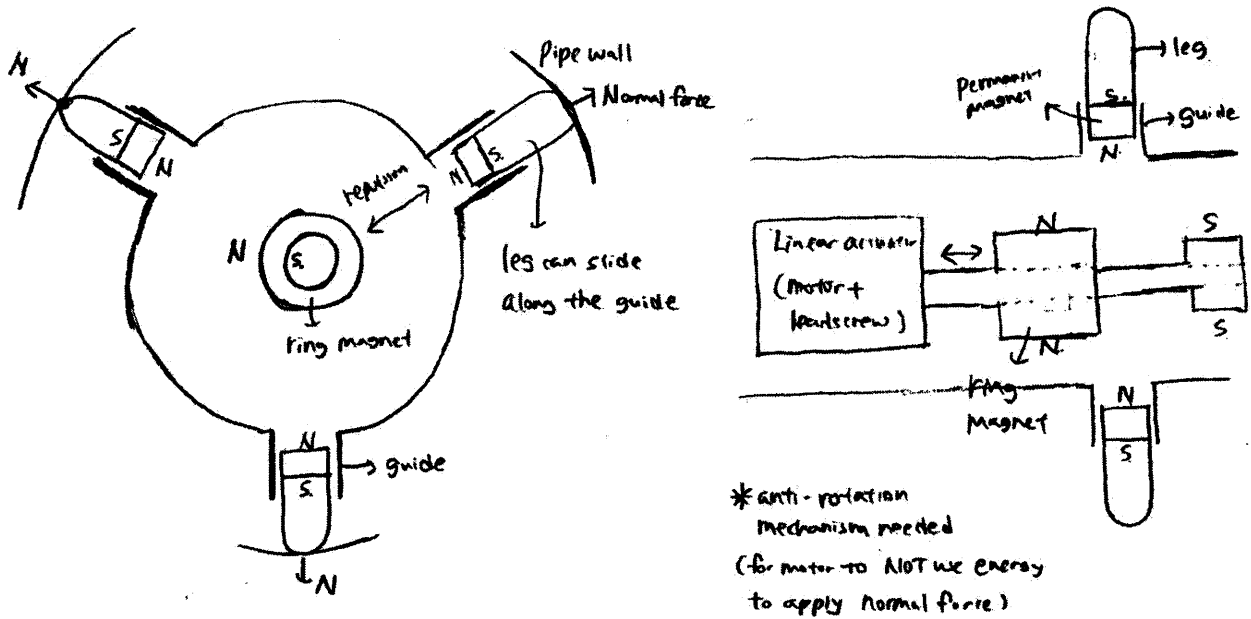 N
Pipe wall
Normal force
S
N
N
S.
repulsion
N
S.
leg can slide
along the guide
ring magnet
N
S.
guide
N
leg
permanent
magnet
S.
guide
N.
Linear actuator
(motor +
leadscrew)
N
S
N.
S
ring
magnet
N
S.
* anti-rotation
mechanism needed
(for motor to NOT use energy
to apply normal force)